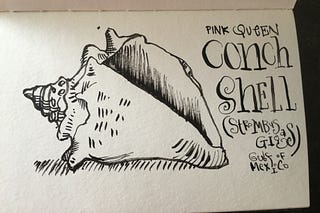 PINK QUEEN
conch
SHELL
(STROMBUS
GIGAS)
GULF OF
MEXICO